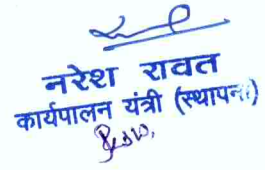 नरेश रावत
कार्यपालन यंत्री (स्थापना)